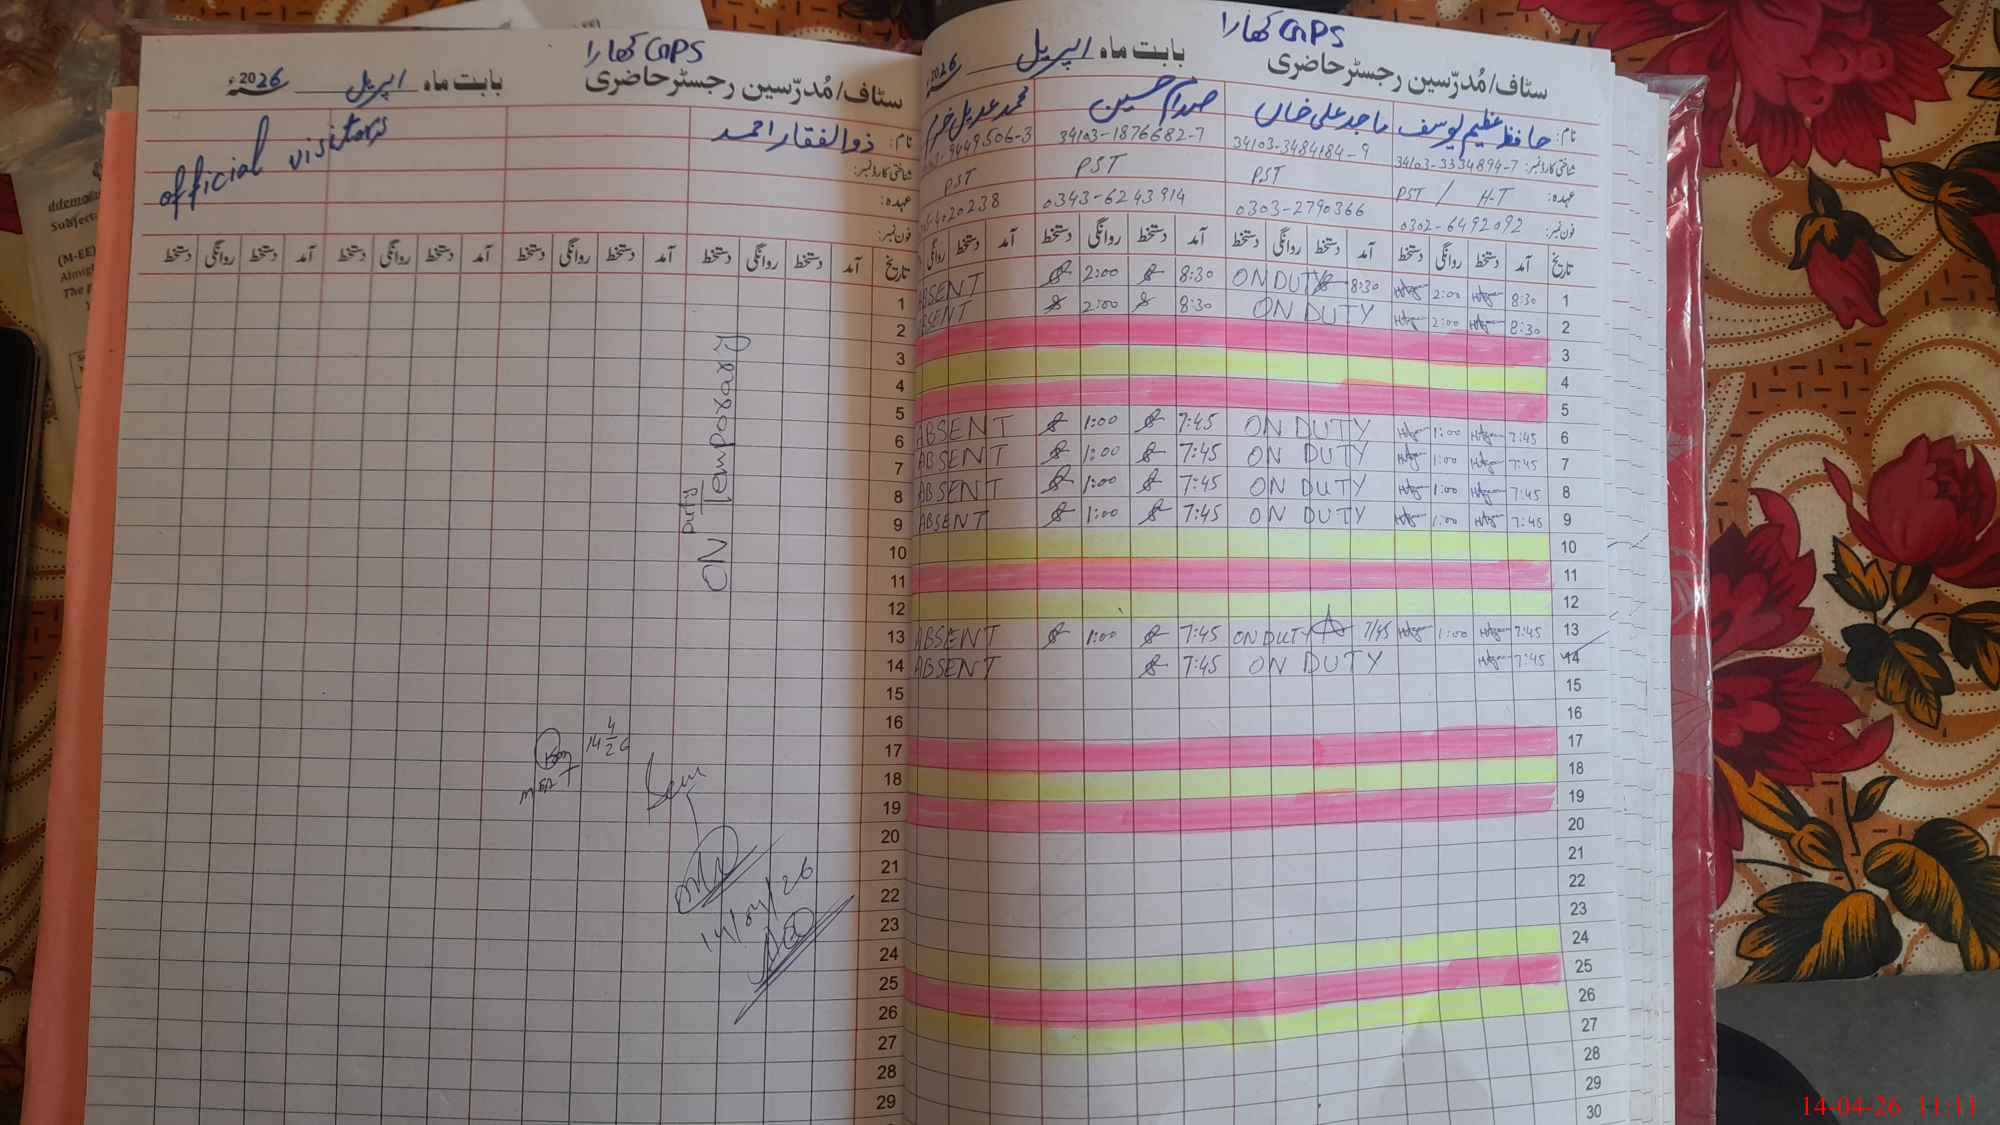 GPS کھارا
سٹاف/مُدرّسین رجسٹر حاضری بابت ماہ اپریل 2026ء
نام: حافظ عظیم یوسف ماجد علی خاں صدام حسین محمد عدیل
شناختی کارڈ نمبر: 34103-3334894-7 34103-3484184-9 34103-1876682-7 9449506-3
عہدہ: PST / H-T PST PST PST
فون نمبر: 0302-6492092 0303-2790366 0343-6243914 4020238
تاریخ آمد دستخط روانگی دستخط آمد دستخط روانگی دستخط آمد دستخط روانگی دستخط آمد دستخط روانگی
1 8:30 2:00 8:30 ON DUTY 8:30 2:00 ABSENT
2 8:30 2:00 ON DUTY 8:30 2:00 ABSENT
3
4
5
6 7:45 1:00 ON DUTY 7:45 1:00 ABSENT
7 7:45 1:00 ON DUTY 7:45 1:00 ABSENT
8 7:45 1:00 ON DUTY 7:45 1:00 ABSENT
9 7:45 1:00 ON DUTY 7:45 1:00 ABSENT
10
11
12
13 7:45 1:00 7/45 ON DUTY 7:45 1:00 ABSENT
14 7:45 ON DUTY 7:45 ABSENT
15
16
17
18
19
20
21
22
23
24
25
26
27
28
29
30
GPS کھارا
سٹاف/مُدرّسین رجسٹر حاضری بابت ماہ اپریل 2026ء
نام: ذوالفقار احمد
official visitors
شناختی کارڈ نمبر:
عہدہ:
فون نمبر:
تاریخ آمد دستخط روانگی دستخط آمد دستخط روانگی دستخط آمد دستخط روانگی دستخط آمد دستخط روانگی دستخط
1
2
3
4
5
6
7
8
9
10
11
12
13
14
15
16
17
18
19
20
21
22
23
24
25
26
27
28
29
ON Duty Temporary
14/4/26
14/04/26
Subject
(M-EE)
14-04-26 11:11